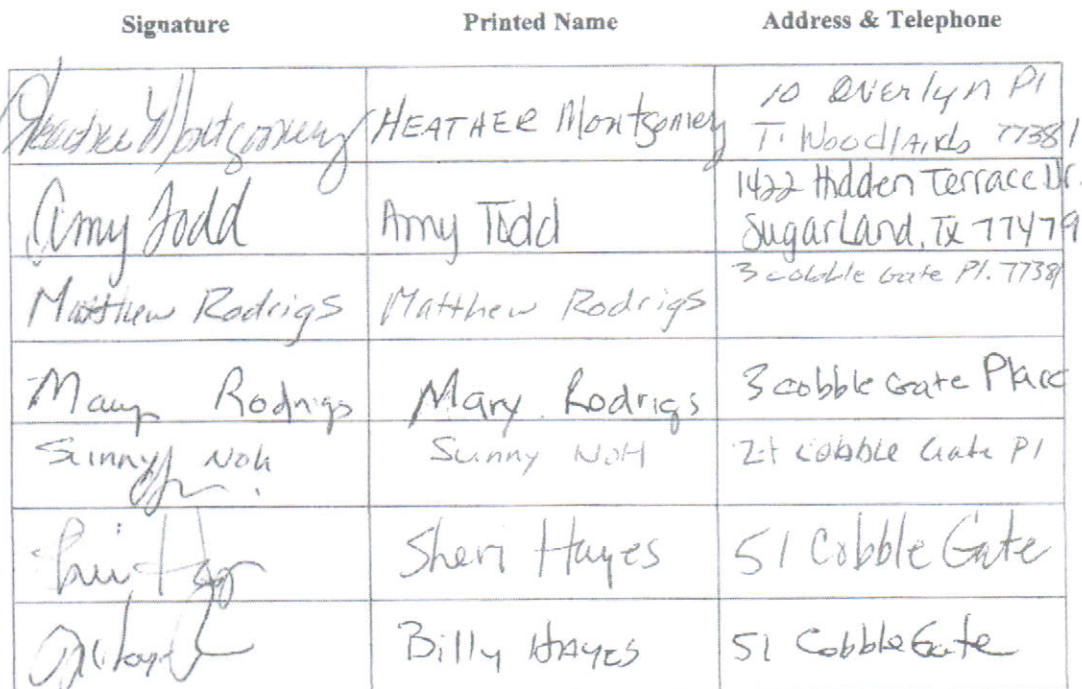 Signature Printed Name Address & Telephone
Heather Montgomery HEATHER Montgomery 10 Overlyn Pl
T. Woodlands 77381
Amy Todd Amy Todd 1422 Hidden Terrace Dr.
Sugarland, Tx 77479
Matthew Rodrigs Matthew Rodrigs 3 cobble Gate Pl. 77381
Mary Rodrigs Mary Rodrigs 3 cobble Gate Place
Sunny Noh Sunny NOH Cobble Gate Pl
Sheri Hayes 51 Cobble Gate
Billy HAYES 51 Cobble Gate